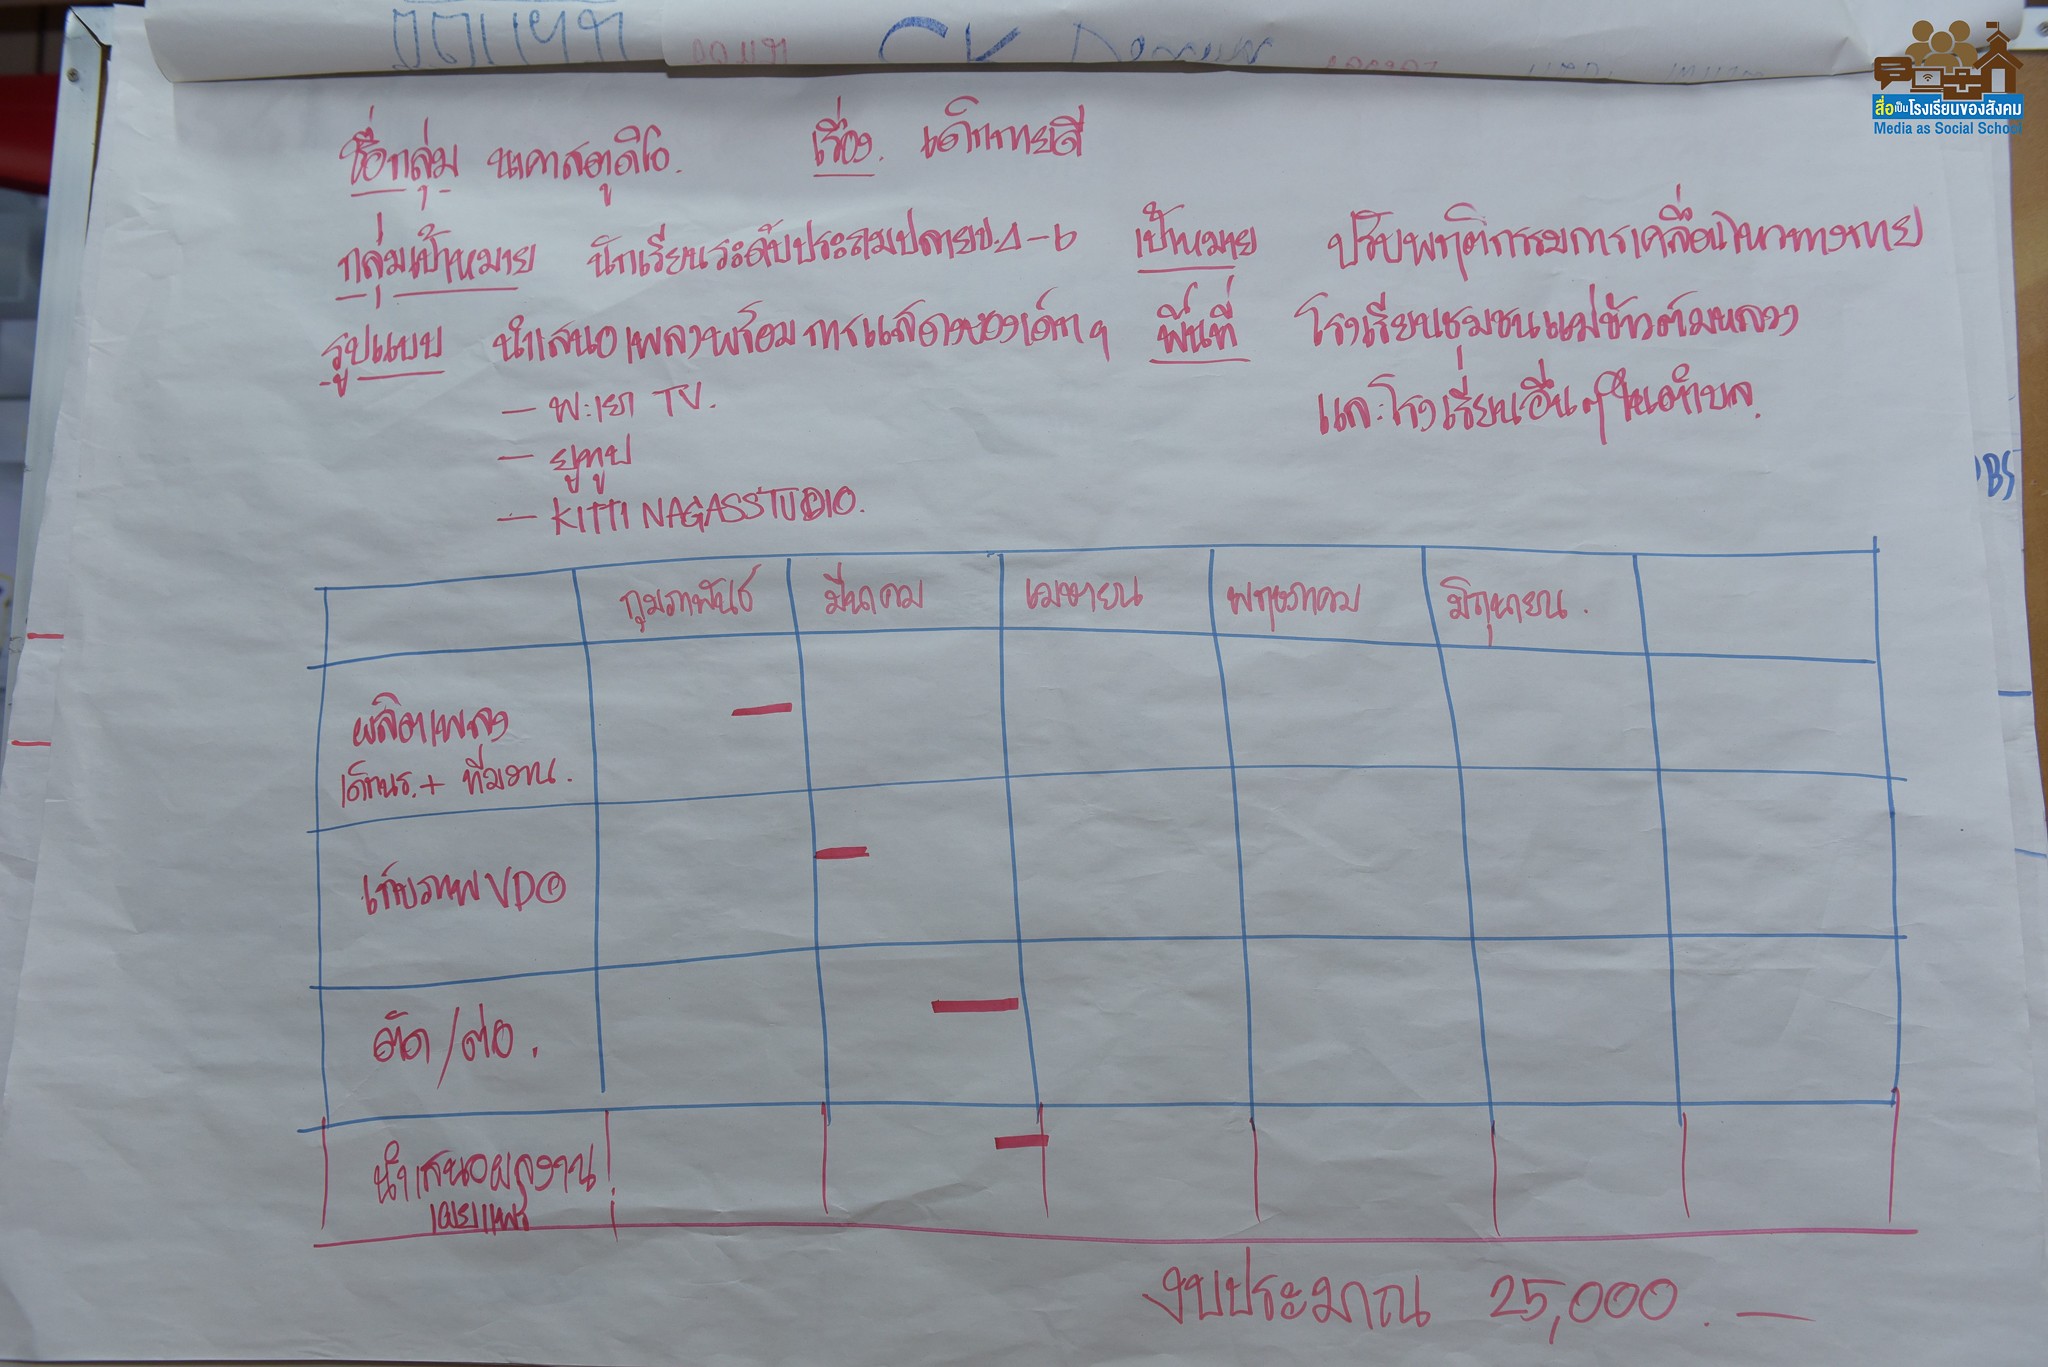 สื่อเป็นโรงเรียนของสังคม
Media as Social School
ชื่อกลุ่ม นาคาสตูดิโอ. เรื่อง. เด็กกายดี
กลุ่มเป้าหมาย นักเรียนระดับประถมปลายป.4-6 เป้าหมาย ปรับพฤติกรรมการเคลื่อนไหวทางกาย
รูปแบบ นำเสนอเพลงพร้อมการแสดงของเด็กๆ พื้นที่ โรงเรียนชุมชนแม่ข้าวต้มหลวง
และโรงเรียนอื่นๆในตำบล.
– พะเยา TV.
– ยูทูป
– KITTI NAGASSTUDIO.
กุมภาพันธ์ มีนาคม เมษายน พฤษภาคม มิถุนายน.
ผลิตเพลง
เด็กนร.+ ทีมงาน.
เก็บภาพ VDO
ตัด/ต่อ.
นำเสนอผลงาน/
เผยแพร่
งบประมาณ 25,000.—